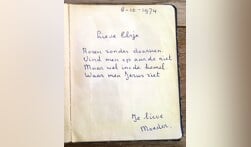 8-10-1974
Lieve Elsje
Rozen zonder doornen
Vind men op aarde niet
Maar wel in de hemel
Waar men Jezus ziet
Je lieve
Moeder.